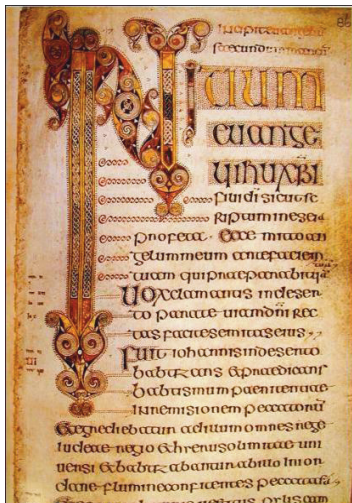 86
INITIUM
euange
lii ihu xpi
filii di sicut sc
riptum in eseia
profeta · Ecce mitto an
gelum meum ante faciem
tuam qui praeparabit
Uox clamantis in deser
to parate uiam dni rec
tas facite semitas eius
Fuit iohannis in deserto
babtizans & praedicans
babtismum paenitentiae
in remisionem peccatorū
& egrediebatur ad illum
iudeae regio & hierusolimitae uni
uersi & babtizabantur ab illo in ior
dane flumine confitentes peccata